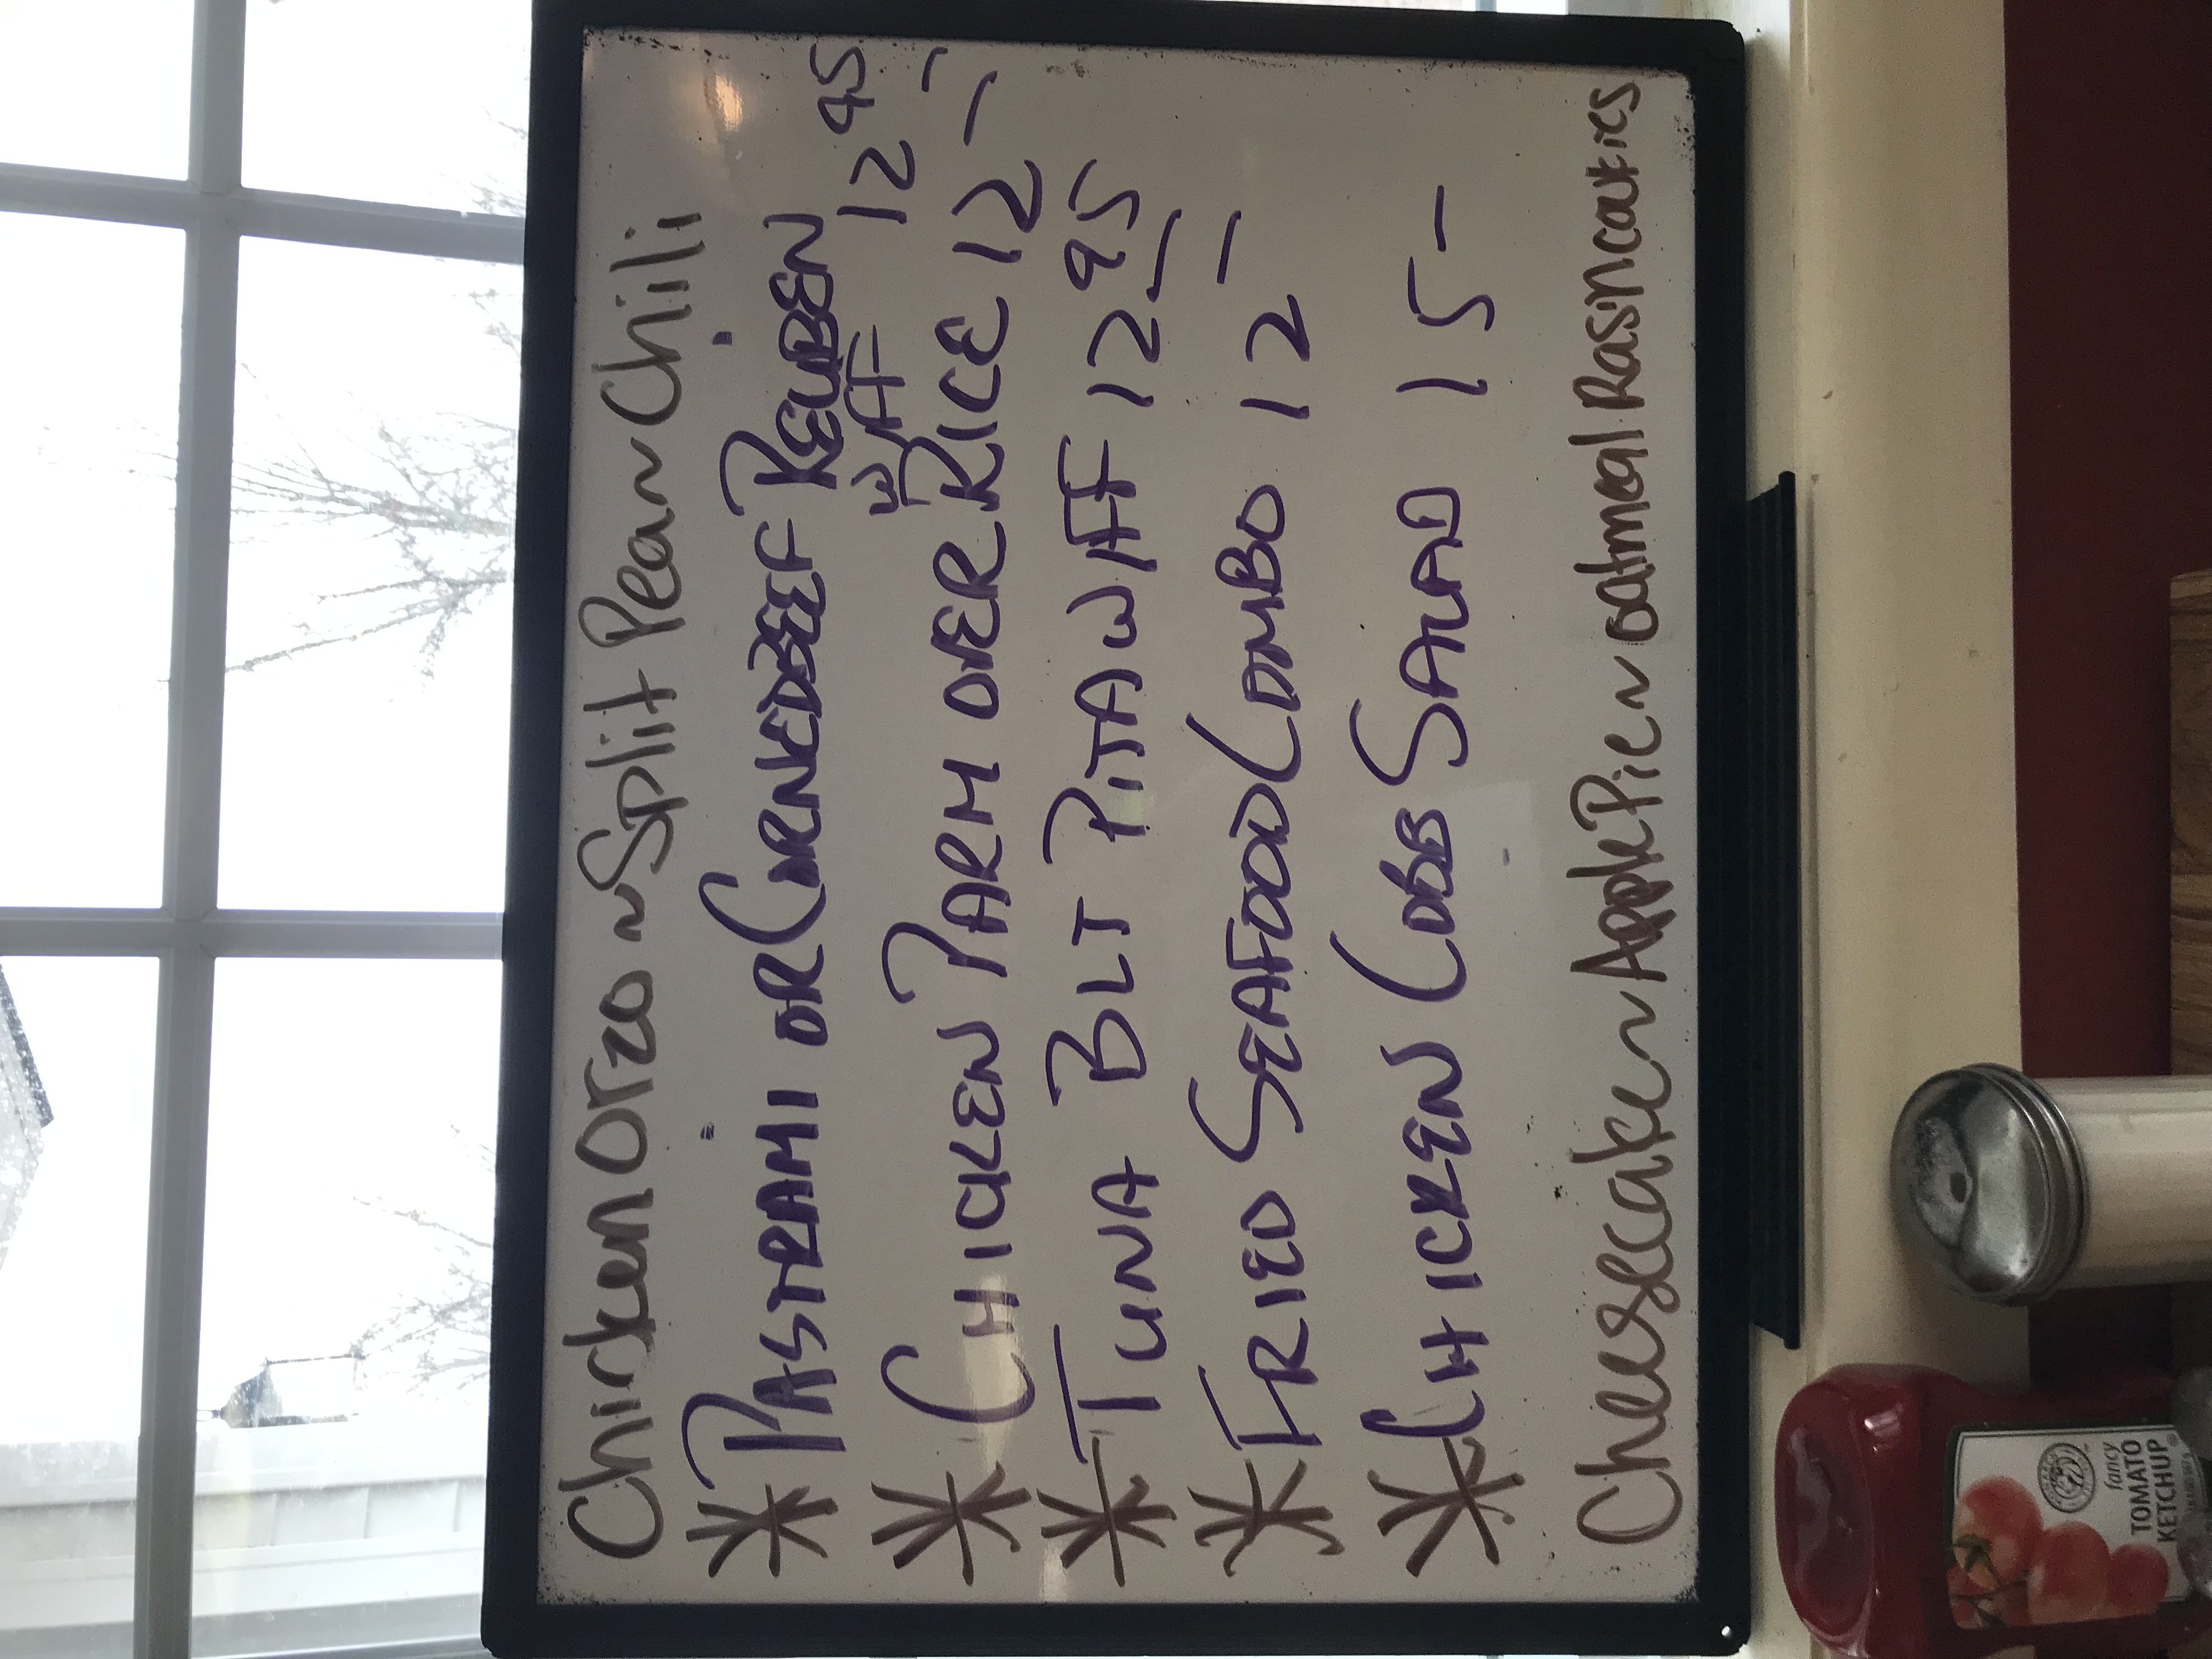 Chicken Orzo ~ Split Pea ~ Chili
* PASTRAMI OR CORNEDBEEF REUBEN
W/FF 12 95
* CHICKEN PARM OVER RICE 12 —
* TUNA BLT PITA W/FF 12 95
* FRIED SEAFOOD COMBO 12 —
* CHICKEN COBB SALAD 15 —
Cheesecake ~ Apple Pie ~ oatmeal Rasin cookies
fancy
TOMATO
KETCHUP